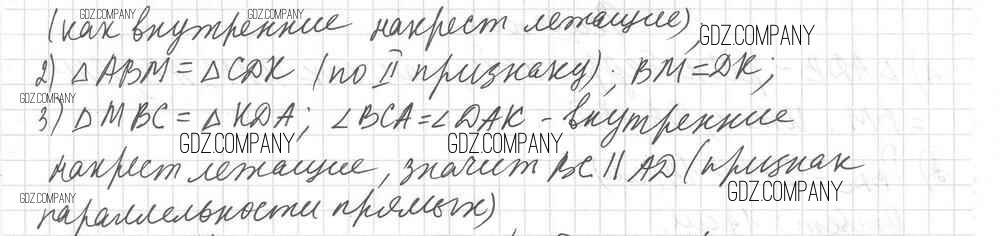 (как внутренние накрест лежащие),
2) △ABM = △CDK (по II признаку); BM = DK;
3) △MBC = △KDA; ∠BCA = ∠DAK - внутренние
накрест лежащие, значит BC || AD (признак
параллельности прямых)
GDZ.COMPANY
GDZ.COMPANY
GDZ.COMPANY
GDZ.COMPANY
GDZ.COMPANY
GDZ.COMPANY
GDZ.COMPANY
GDZ.COMPANY